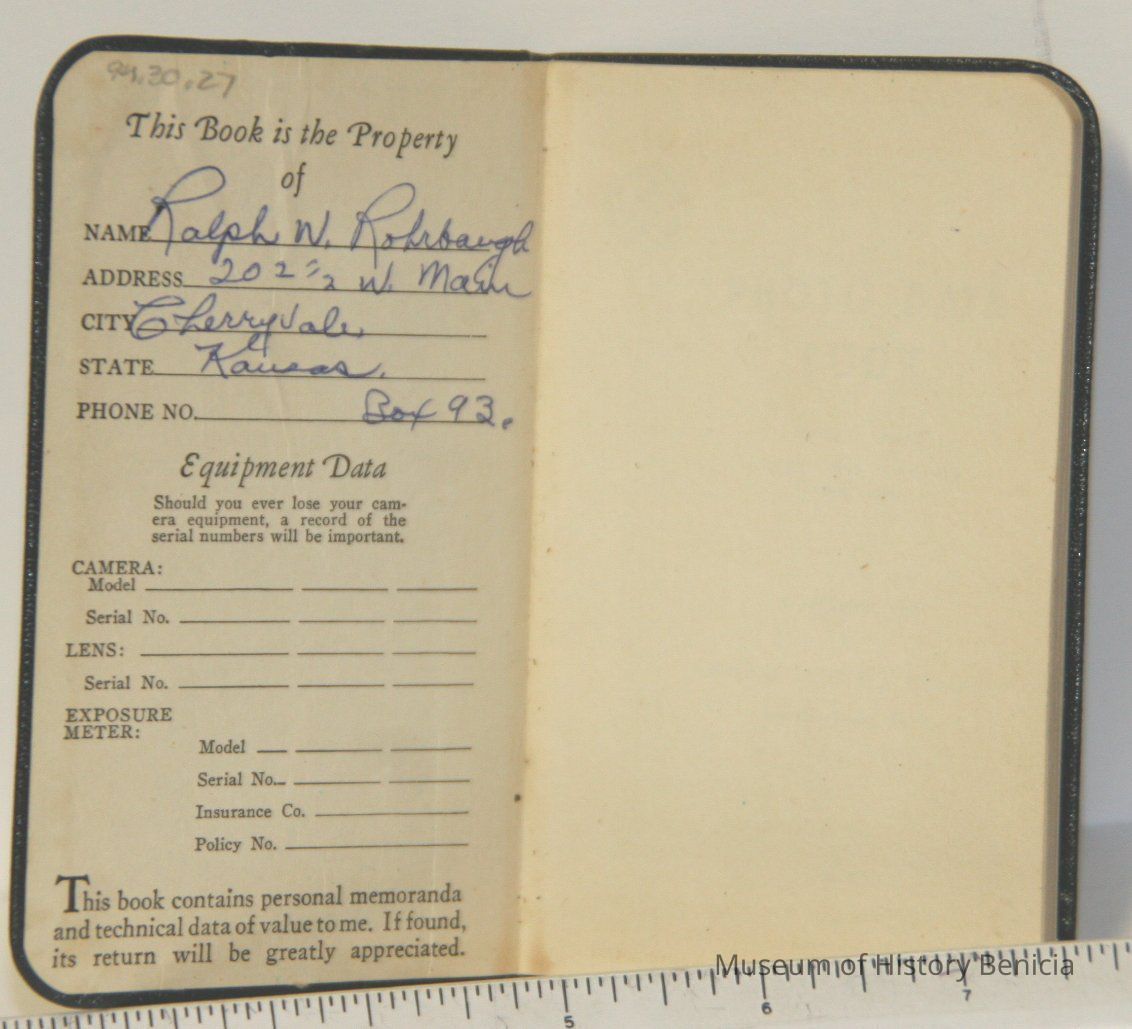 94.30.27
This Book is the Property
of
NAME Ralph W. Rohrbaugh
ADDRESS 202 1/2 W. Main
CITY Cherryvale,
STATE Kansas.
PHONE NO. Box 93.
Equipment Data
Should you ever lose your cam-
era equipment, a record of the
serial numbers will be important.
CAMERA:
Model
Serial No.
LENS:
Serial No.
EXPOSURE
METER:
Model
Serial No.
Insurance Co.
Policy No.
This book contains personal memoranda
and technical data of value to me. If found,
its return will be greatly appreciated.
Museum of History Benicia
5 6 7